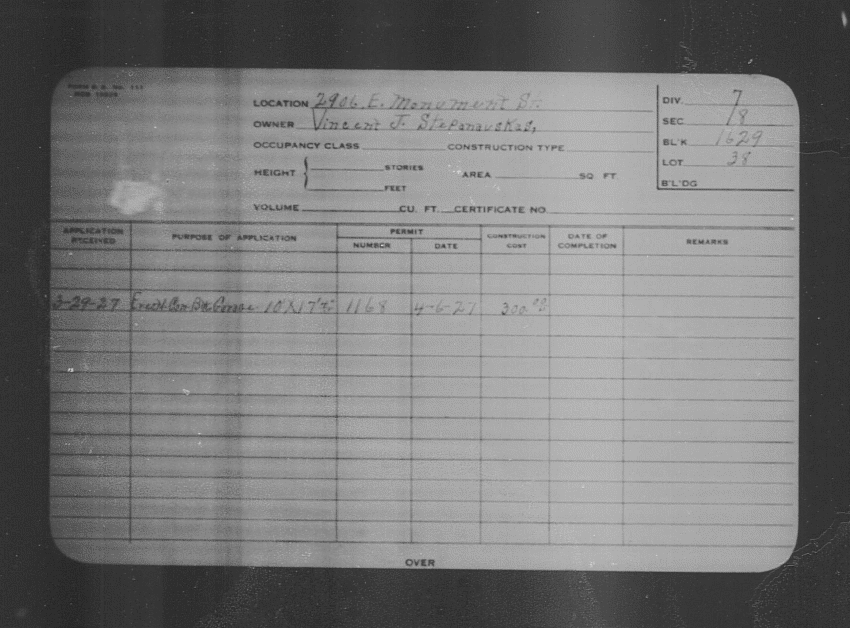 LOCATION 2906 E. Monument St.
OWNER Vincent J. Stepanauskas,
OCCUPANCY CLASS CONSTRUCTION TYPE
HEIGHT STORIES AREA SQ. FT.
FEET
VOLUME CU. FT. CERTIFICATE NO.
DIV. 7
SEC 18
BL'K 1629
LOT 38
B'L'DG
APPLICATION RECEIVED PURPOSE OF APPLICATION PERMIT CONSTRUCTION COST DATE OF COMPLETION REMARKS
NUMBER DATE
3-29-27 Erect Con. Bk. Garage 10'X17' 1168 4-6-27 300.00
OVER